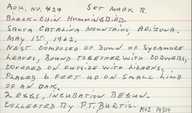 ACK. NO. 429 SET MARK R.
BLACK-CHIN HUMMINGBIRD
SANTA CATALINA MOUNTAINS ARIZONA.
MAY 1ST, 1902.
NEST COMPOSED OF DOWN OF SYCAMORE
LEAVES, BOUND TOGETHER WITH COBWEBS,
COVERED ON OUTSIDE WITH LICHENS,
PLACED 6 FEET UP ON SMALL LIMB
OF AN OAK,
2 EGGS, INCUBATION BEGUN.
COLLECTED BY